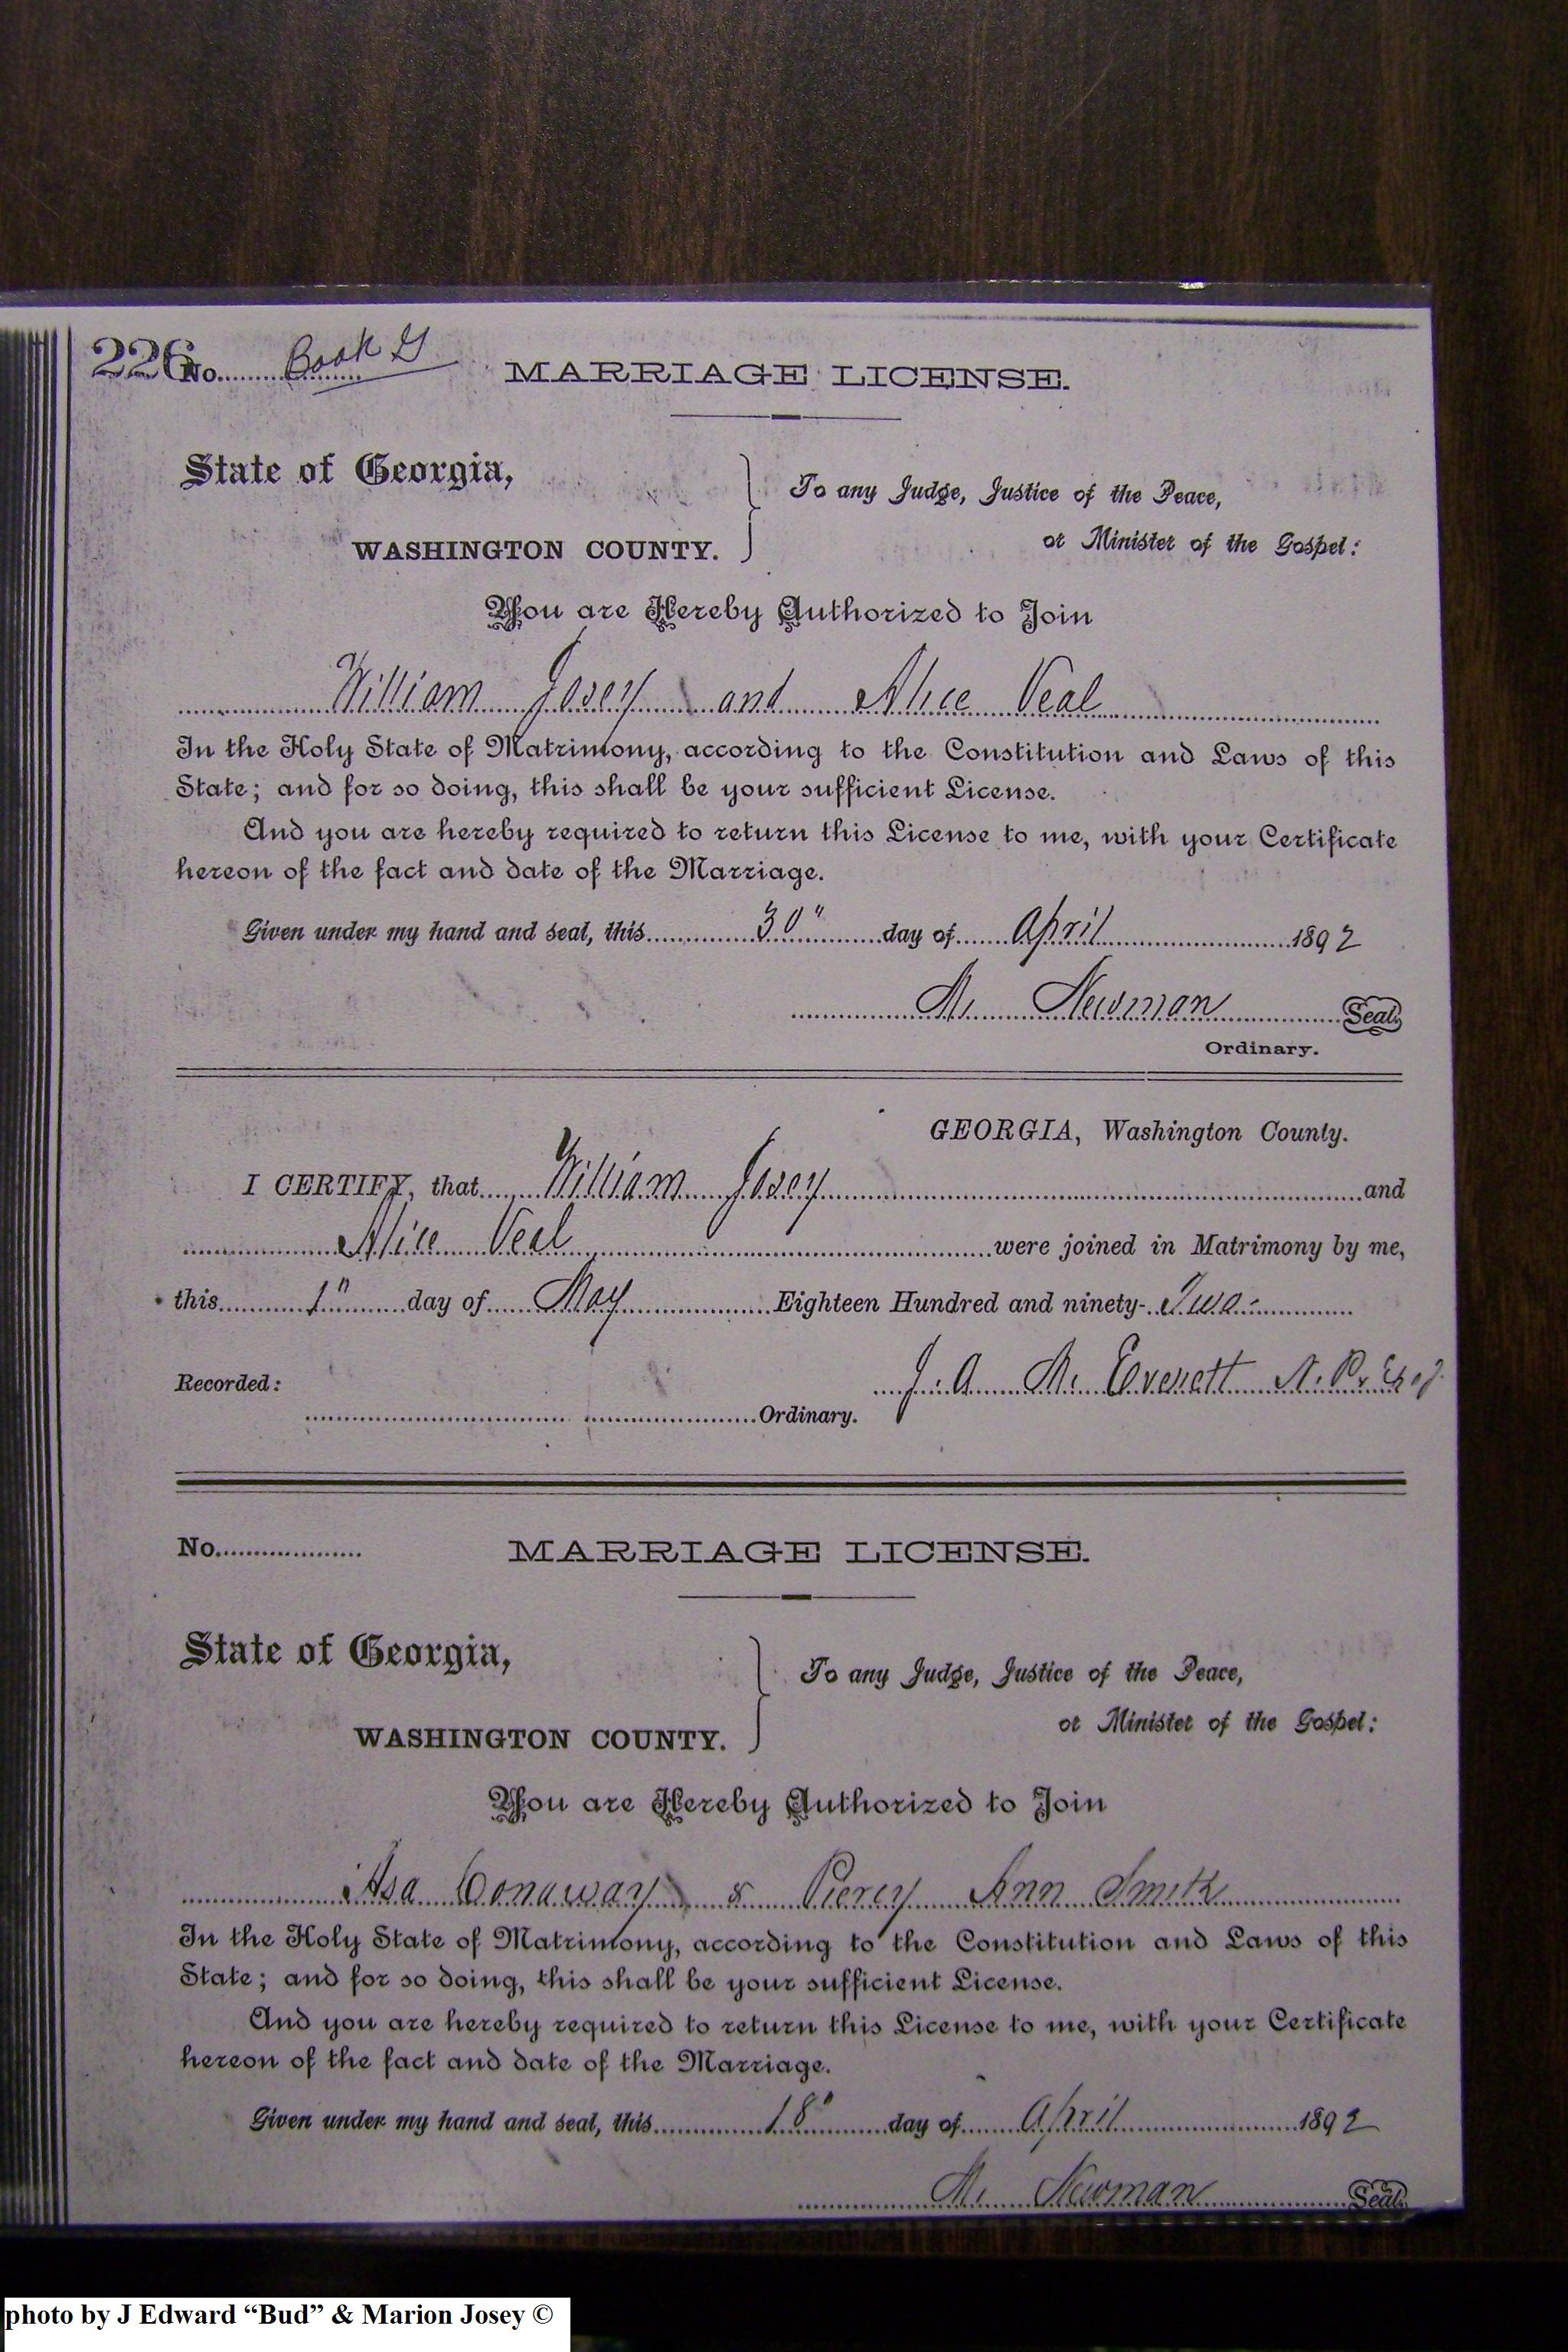 226 No. Book G MARRIAGE LICENSE.
State of Georgia,
WASHINGTON COUNTY.
To any Judge, Justice of the Peace,
or Minister of the Gospel:
You are Hereby Authorized to Join
William Josey and Alice Veal
In the Holy State of Matrimony, according to the Constitution and Laws of this
State; and for so doing, this shall be your sufficient License.
And you are hereby required to return this License to me, with your Certificate
hereon of the fact and date of the Marriage.
Given under my hand and seal, this 30" day of April 1892
M. Newman Seal.
Ordinary.
GEORGIA, Washington County.
I CERTIFY, that William Josey and
Alice Veal were joined in Matrimony by me,
this 1" day of May Eighteen Hundred and ninety- Two
J. A. M. Everett N. P.
Recorded:
Ordinary.
No. MARRIAGE LICENSE.
State of Georgia,
WASHINGTON COUNTY.
To any Judge, Justice of the Peace,
or Minister of the Gospel:
You are Hereby Authorized to Join
Asa Conaway & Piercy Ann Smith
In the Holy State of Matrimony, according to the Constitution and Laws of this
State; and for so doing, this shall be your sufficient License.
And you are hereby required to return this License to me, with your Certificate
hereon of the fact and date of the Marriage.
Given under my hand and seal, this 18" day of April 1892
M. Newman Seal.
photo by J Edward “Bud” & Marion Josey ©